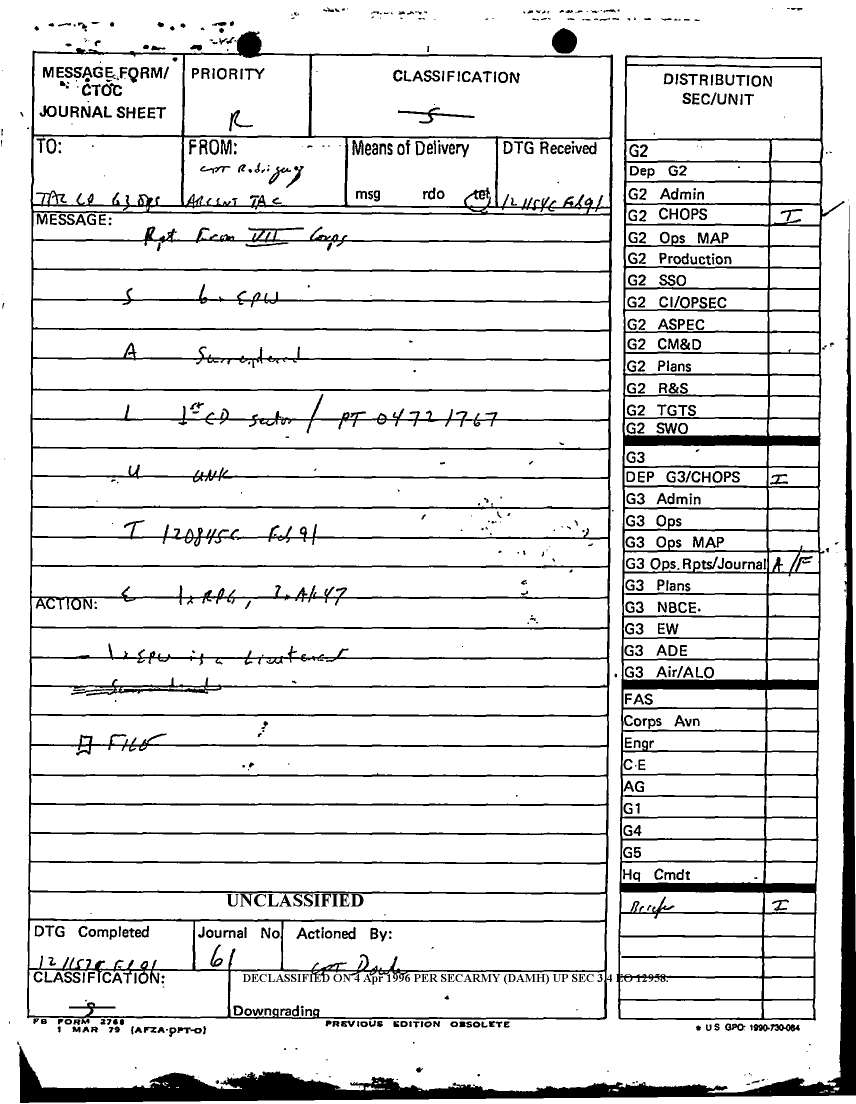 MESSAGE FORM/
CTOC
JOURNAL SHEET
PRIORITY
R
CLASSIFICATION
S
DISTRIBUTION
SEC/UNIT
TO:
TAC CP G3 Ops
FROM:
CPT Rodriguez
ARCENT TAC
Means of Delivery
msg rdo tel
DTG Received
121154C Feb 91
MESSAGE:
Rpt From VII Corps
S 6 x EPW
A Surrendered
L 1st CD sector / PT 04721767
U UNK
T 120845C Feb 91
ACTION:
E 1 x RPG, 2 x AK47
- 1 x EPW is a Lieutenant
FILE
G2
Dep G2
G2 Admin
G2 CHOPS I
G2 Ops MAP
G2 Production
G2 SSO
G2 CI/OPSEC
G2 ASPEC
G2 CM&D
G2 Plans
G2 R&S
G2 TGTS
G2 SWO
G3
DEP G3/CHOPS I
G3 Admin
G3 Ops
G3 Ops MAP
G3 Ops. Rpts/Journal A/F
G3 Plans
G3 NBCE.
G3 EW
G3 ADE
G3 Air/ALO
FAS
Corps Avn
Engr
C-E
AG
G1
G4
G5
Hq Cmdt
Briefer I
UNCLASSIFIED
DTG Completed
Feb 91
Journal No
61
Actioned By:
CPT
CLASSIFICATION:
S
DECLASSIFIED ON 4 Apr 1996 PER SECARMY (DAMH) UP SEC 3.4 EO 12958.
Downgrading
FB FORM 2768
1 MAR 79 (AFZA-DPT-O)
PREVIOUS EDITION OBSOLETE
* US GPO: 1990-730-084